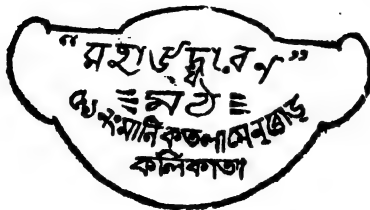 “মহাউদ্ধারণ”
মঠ
৫৯ নং মানিকতলা মেন্ রোড্
কলিকাতা